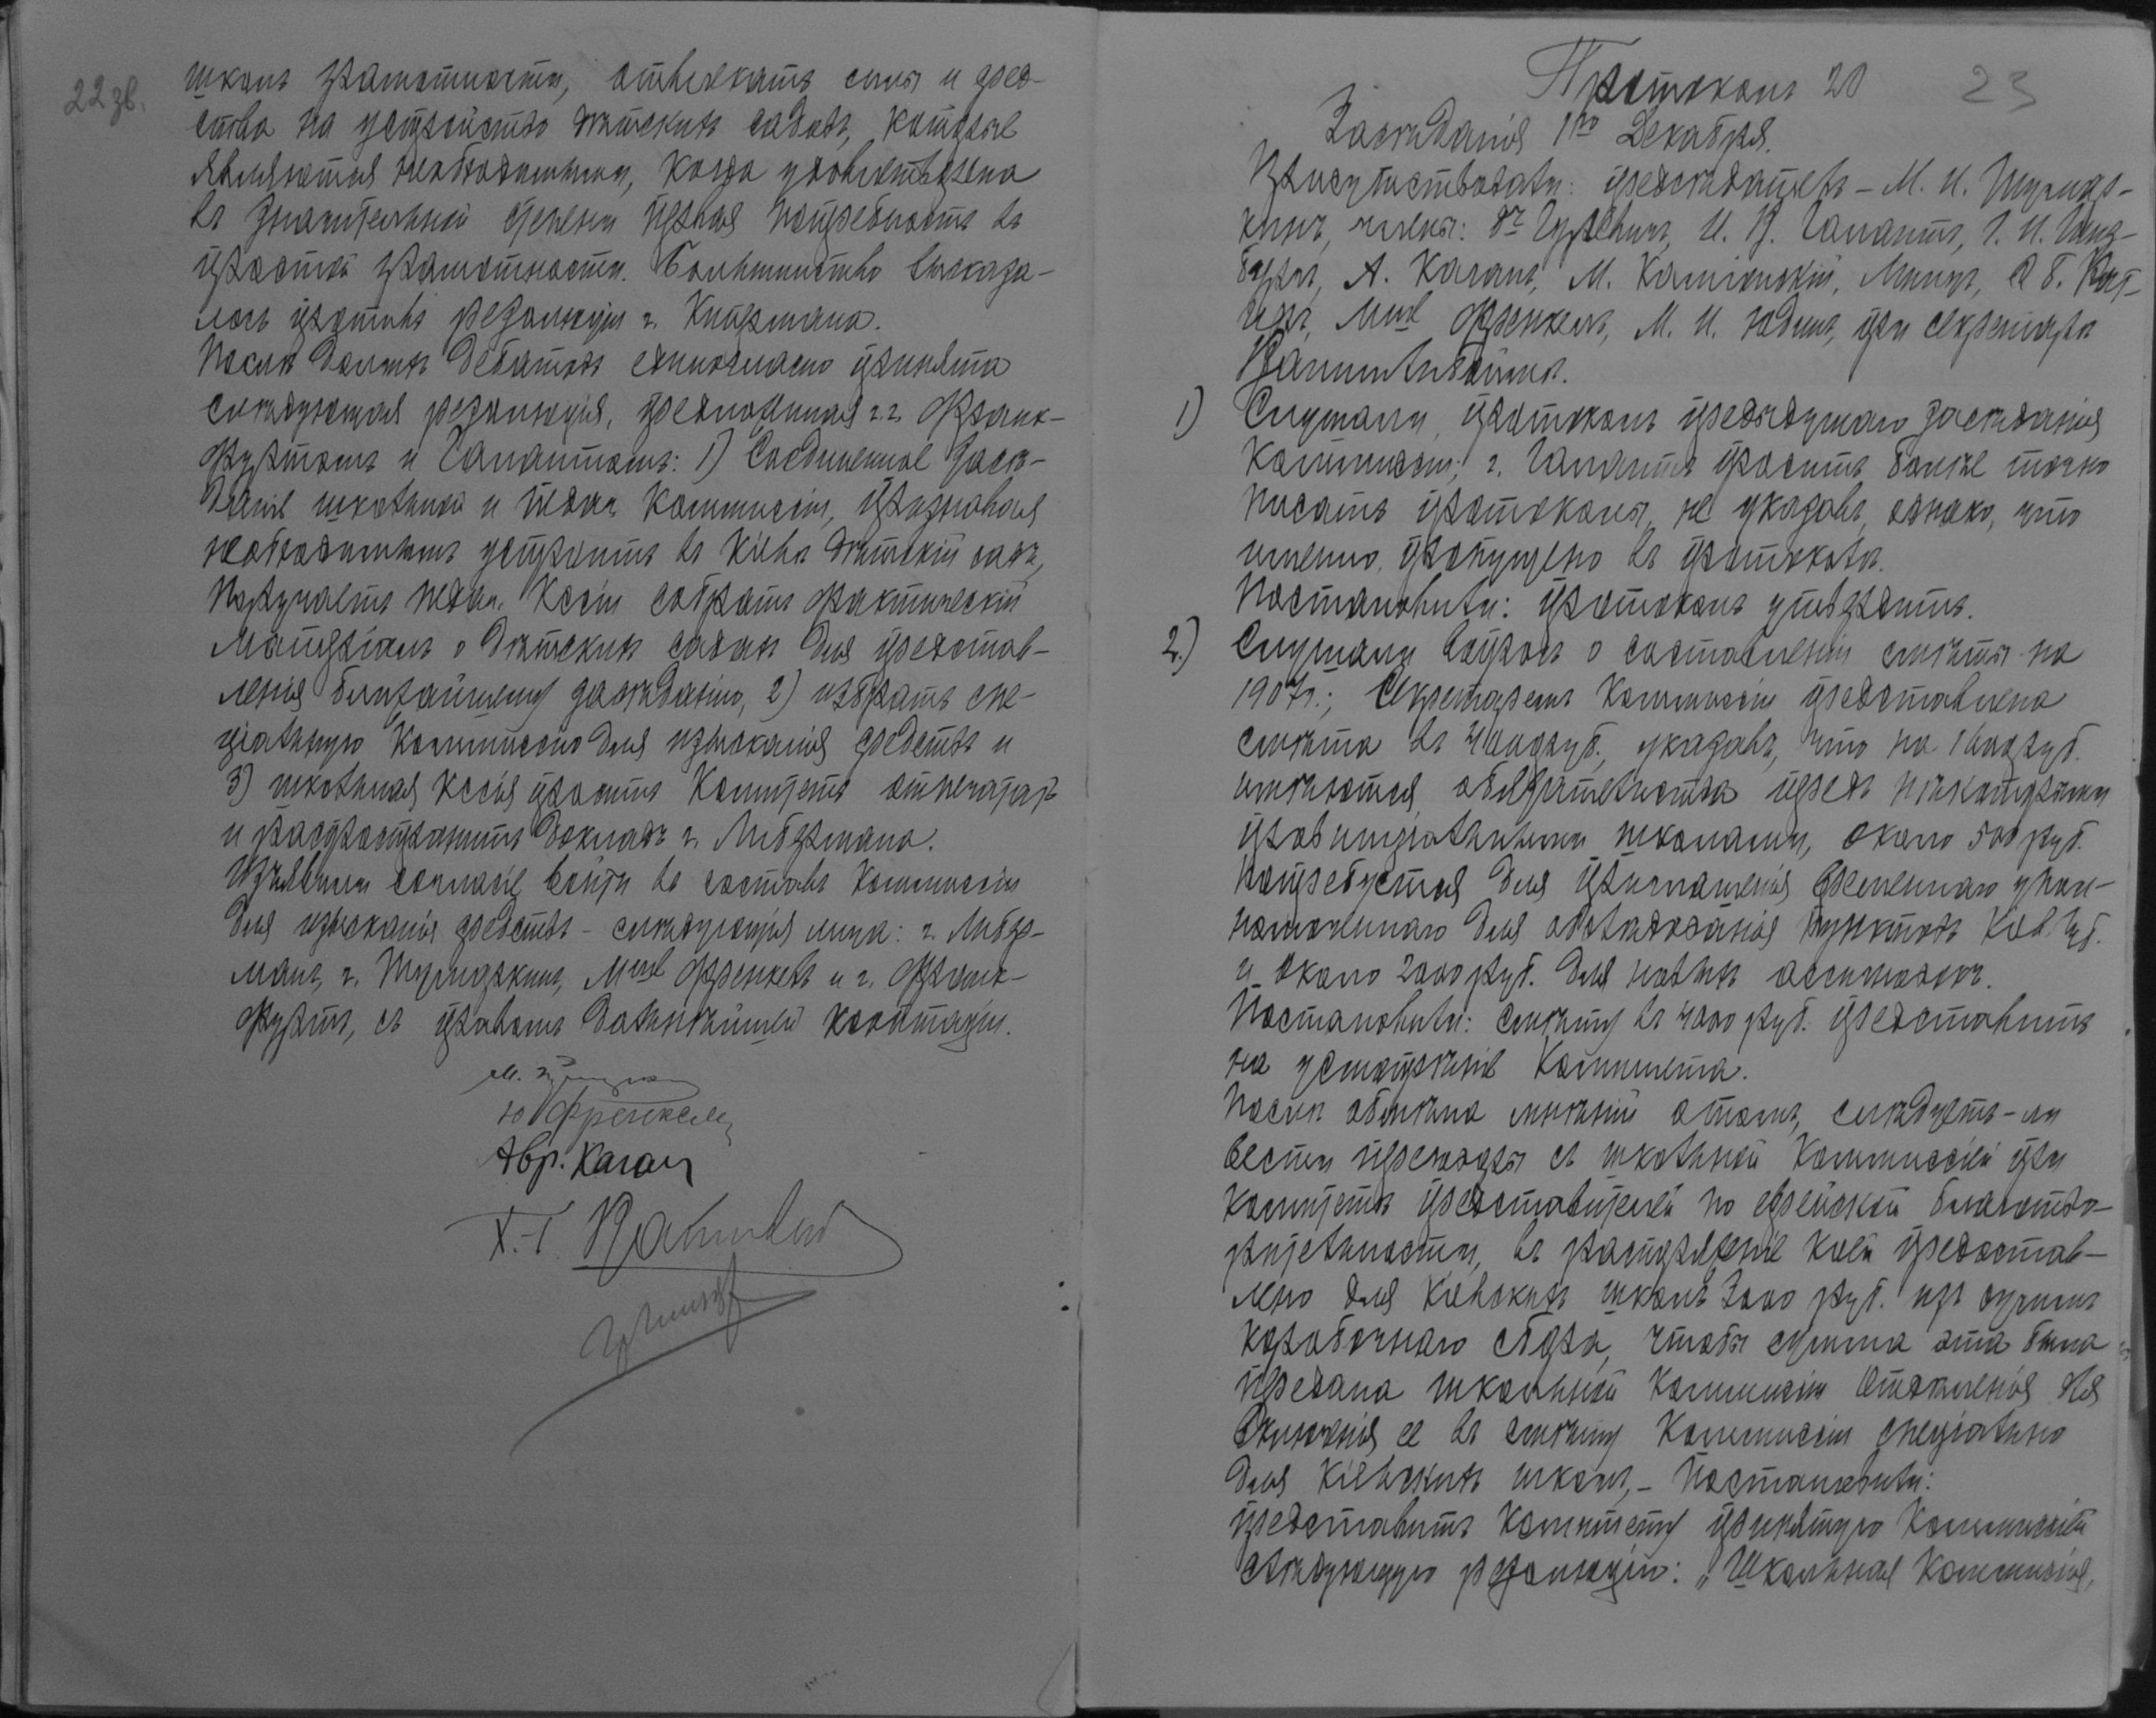 22 зв.
школъ грамотности, отвлекать силы и сред-
ства на устройство дѣтскихъ садовъ, которые
являются необходимыми, когда удовлетворена
въ значительной степени первая потребность въ
простой грамотности. Большинство выказа-
лось противъ резолюціи г. Кипермана.
Послѣ долгихъ дебатовъ единогласно принята
слѣдующая резолюція, предложенная г.г. Франк-
фуртомъ и Галантомъ: 1) Соединенное Засѣ-
даніе школьной и педаг. Коммиссіи, признавая
необходимымъ устроить въ Кіевѣ дѣтскій садъ,
поручаетъ педаг. Кссіи собрать фактическій
матеріалъ о дѣтскихъ садахъ для представ-
ленія ближайшему засѣданію, 2) избрать спе-
ціальную Коммиссію для изысканія средствъ и
3) школьная Кссія проситъ Комитетъ отпечатать
и распространить докладъ г. Либермана.
Изъявили согласіе войти въ составъ Коммиссіи
для изысканія средствъ - слѣдующія лица: г. Либер-
манъ, г. Шулидкинъ, Mme Френкель и г. Франк-
фуртъ, съ правомъ дальнѣйшей кооптаціи.
Ю Френкель
Авр. Каган
23
Протоколъ 20
Засѣданія 1го Декабря.
Присутствовали: предсѣдатель - М. И.
кинъ, члены: д-ръ Гуревичъ, И. В. Галантъ, Г. И. Гинз-
бургъ, А. Каганъ, М. Каміонскій, Минцъ,
Mme Френкель, М. И. Юдинъ, при секретарѣ
1) Слушали протоколъ предыдущаго засѣданія
Коммиссіи; г. Галантъ проситъ болѣе точно
писать протоколы, не указавъ, однако, что
именно пропущено въ протоколѣ.
Постановили: протоколъ утвердить.
2) Слушали вопросъ о составленіи смѣты на
1907 г.; Секретаремъ Коммиссіи представлена
смѣта въ 4000 руб., указавъ, что на 1600 руб.
имѣются обязательства передъ нѣкоторыми
провинціальными школами, около 500 руб.
потребуется для приглашенія временнаго упол-
номоченнаго для обслѣдованія пунктовъ Кіев. Губ.
и около 2000 руб. для новыхъ ассигновокъ.
Постановили: смѣту въ 4000 руб. представить
на усмотрѣніе Комитета.
Послѣ обмѣна мнѣній о томъ, слѣдуетъ-ли
вести переговоры съ школьной Коммиссіей при
комитетѣ представителей по еврейской благотво-
рительности, въ распоряженіе коей предостав-
лено для Кіевскихъ школъ 3000 руб. изъ суммъ
коробочнаго сбора, чтобы сумма эта была
передана школьной Коммиссіи Отдѣленія для
включенія ее въ смѣту Коммиссіи спеціально
для Кіевскихъ школъ, - Постановили:
представить Комитету принятую Коммиссіей
слѣдующую резолюцію: "Школьная Коммиссія,